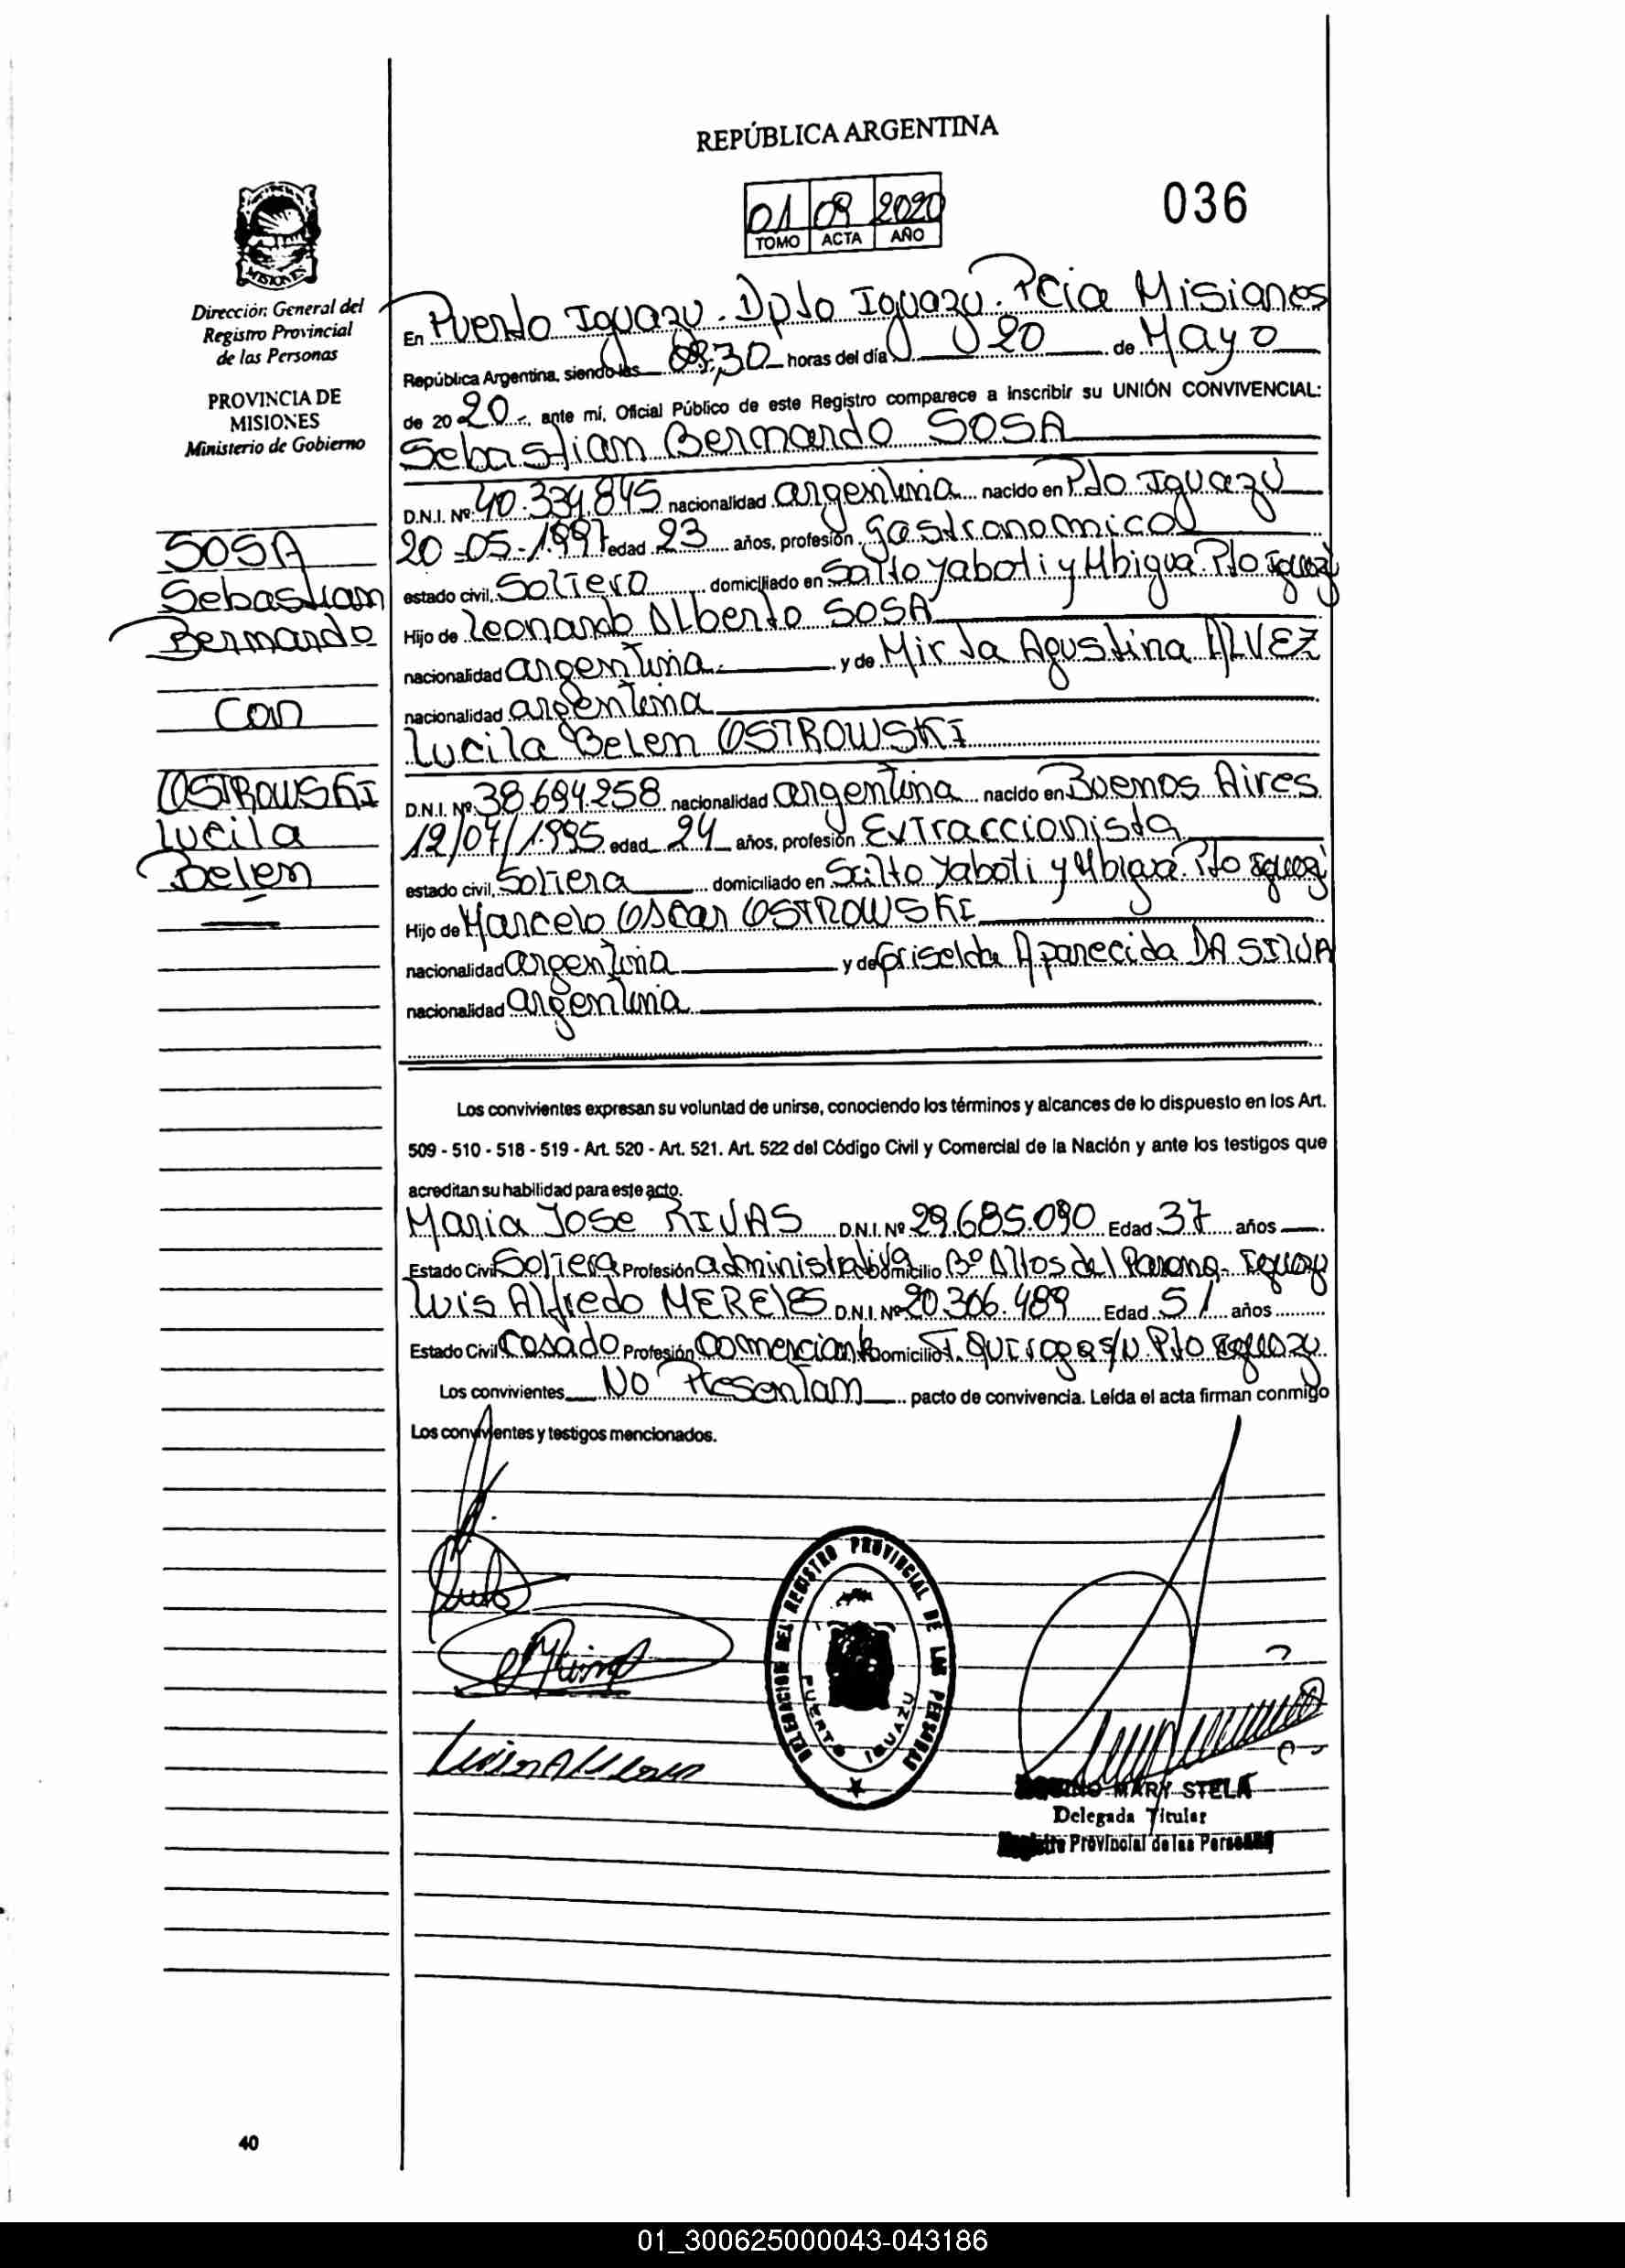 REPÚBLICA ARGENTINA
01 09 2020
TOMO ACTA AÑO
036
MISIONES
Dirección General del
Registro Provincial
de las Personas
PROVINCIA DE
MISIONES
Ministerio de Gobierno
En Puerto Iguazu. Dpto Iguazu. Pcia Misiones
República Argentina, siendo las 09:30 horas del día 20 de Mayo
de 2020, ante mí, Oficial Público de este Registro comparece a inscribir su UNIÓN CONVIVENCIAL:
Sebastian Bernardo SOSA
D.N.I. Nº 40.334.845 nacionalidad argentina nacido en Pto Iguazú
20-05-1997 edad 23 años, profesión gastronomico
estado civil, Soltero domiciliado en Salto Yaboti y Mbigua Pto Iguazú
Hijo de Leonardo Alberto SOSA
nacionalidad argentina y de Mirta Agustina ALVEZ
nacionalidad argentina
Lucila Belen OSTROWSKI
D.N.I. Nº 38.694.258 nacionalidad argentina nacido en Buenos Aires
12/07/1995 edad 24 años, profesión Extraccionista
estado civil, Soltera domiciliado en Salto Yaboti y Mbigua Pto Iguazú
Hijo de Marcelo Oscar OSTROWSKI
nacionalidad argentina y de Griselda Aparecida DA SILVA
nacionalidad argentina
SOSA
Sebastian
Bernardo
Con
OSTROWSKI
Lucila
Belen
Los convivientes expresan su voluntad de unirse, conociendo los términos y alcances de lo dispuesto en los Art.
509 - 510 - 518 - 519 - Art. 520 - Art. 521. Art. 522 del Código Civil y Comercial de la Nación y ante los testigos que
acreditan su habilidad para este acto.
Maria Jose RIVAS D.N.I. Nº 29.685.090 Edad 37 años
Estado Civil Soltera Profesión administrativa Domicilio Bº Altos del Parana - Iguazu
Luis Alfredo MERELES D.N.I. Nº 20.306.489 Edad 51 años
Estado Civil Casado Profesión Comerciante Domicilio F. Quiroga s/n Pto Iguazu
Los convivientes No Presentan pacto de convivencia. Leída el acta firman conmigo
Los convivientes y testigos mencionados.
DELEGACION DEL REGISTRO PROVINCIAL DE LAS PERSONAS
PUERTO IGUAZU
MARY STELA
Delegada Titular
Registro Provincial de las Personas
40
01_300625000043-043186